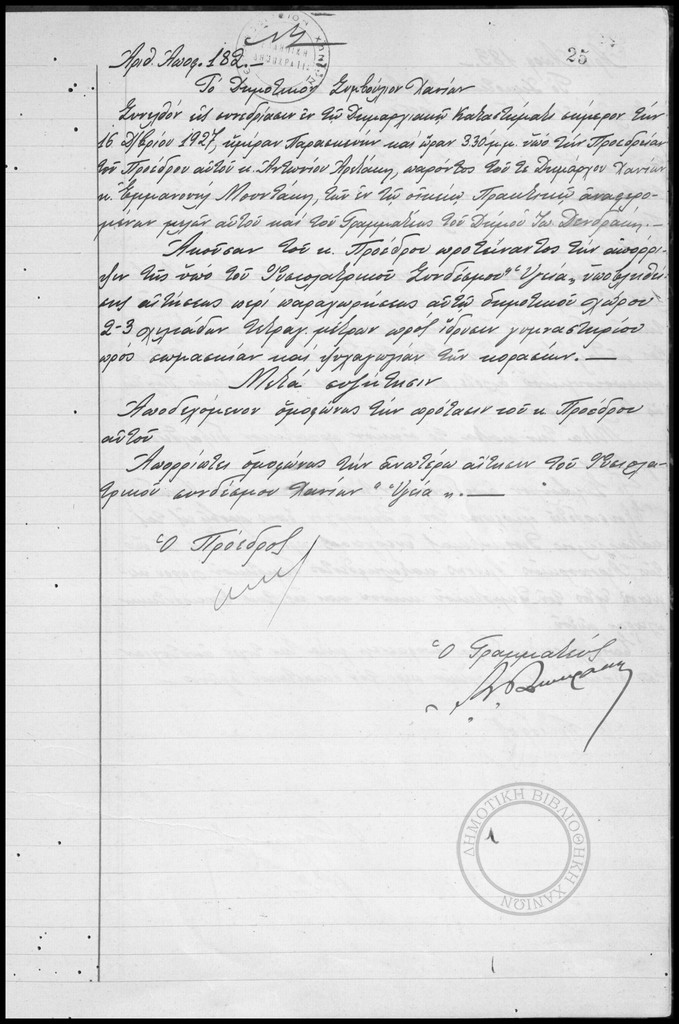 25
Αριθ. Αποφ. 182.-
Το Δημοτικόν Συμβούλιον Χανίων
Συνελθόν εις συνεδρίασιν εν τω Δημαρχιακώ Καταστήματι σήμερον την
16 Δ/βρίου 1927, ημέραν Παρασκευήν και ώραν 330 μ.μ. υπό την Προεδρείαν
του Προέδρου αυτού κ. Αντωνίου παρόντος του τε Δημάρχου Χανίων
κ. Εμμανουήλ Μουντάκη, των εν τω οικείω Πρακτικώ αναφερο-
μένων μελών αυτού και του Γραμματέως του Δήμου Ιω Δενδράκη.-
Ακούσαν του κ. Προέδρου προτείναντος την απόρρι-
ψιν της υπό του Φυσιολατρικού Συνδέσμου "Υγεία" υποβληθεί-
σης αιτήσεως περί παραχωρήσεως αυτώ δημοτικού χώρου
2-3 χιλιάδων τετραγ. μέτρων προς ίδρυσιν γυμναστηρίου
προς σωμασκίαν και ψυχαγωγίαν των κορασίων.-
Μετά συζήτησιν
Αποδεχόμενον ομοφώνως την πρότασιν του κ. Προέδρου
αυτού
Απορρίπτει ομοφώνως την ανωτέρω αίτησιν του Φυσιολα-
τρικού συνδέσμου Χανίων "Υγεία".-
Ο Πρόεδρος
Ο Γραμματεύς
ΔΗΜΟΤΙΚΗ ΒΙΒΛΙΟΘΗΚΗ ΧΑΝΙΩΝ